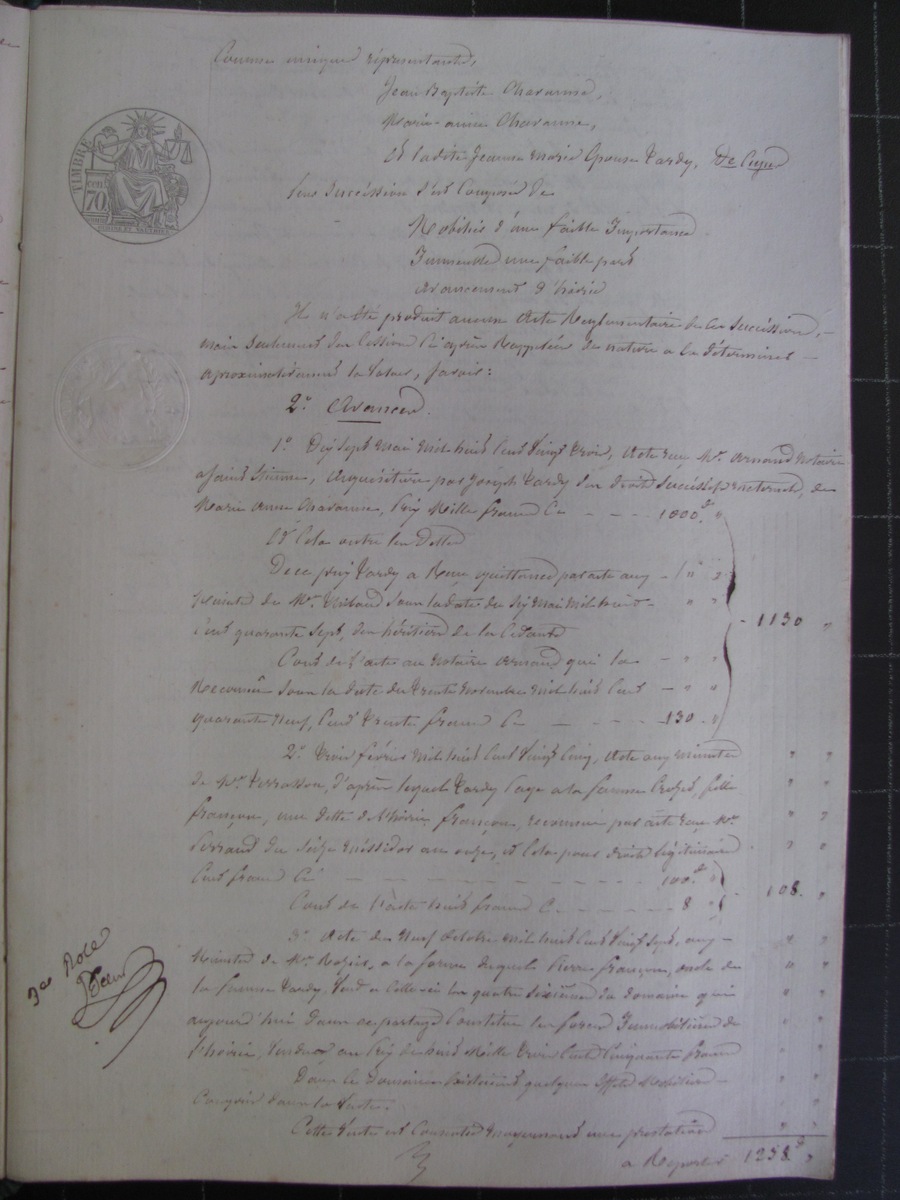 Comme unique représentante,
Jean Baptiste Chavanne,
Marie-anne Chavanne,
Et ladite Jeanne Marie Epouse Tardy, De Cujus
Leur Succéssion s'est Composée de
Mobilier d'une faible Importance
Immeuble une faible part
avancement d'hoirie
Il n'a été produit aucun Acte Reglementaire de ces Succéssions,
mais Seulement des Cessions Ci après Rappelées de nature a la déterminer
aproximativement la Valeur, Savoir:
2° Avances.
1° Dix Sept Mai Mil huit Cent Vingt Trois, Acte reçu Me Arnaud Notaire
a Saint Etienne, Acquisition par Joseph Tardy des droits Successifs maternels, de
Marie Anne Chavanne, Prix Mille francs Ci 1000.f "
Et Cela outre les Dettes
De ce prix Tardy a Reçu quittance par acte aux
Minutes de Me Thibaud Sous la date du Six Mai Mil huit
Cent quarante Sept, des héritiers de la Cédante - 1130 "
Cout de l'acte au Notaire Arnaud qui la
Reconnu Sous la date du Trente Novembre Mil huit Cent
quarante Neuf, Cent Trente francs Ci 130 "
2° Trois février Mil huit Cent Vingt Cinq, Acte aux minutes
de Me Terrasson, d'après lequel Tardy Paye a la femme Crozet, fille
françon, une dette de l'hoirie françon, reconnue par acte reçu Me
Perraud du Seize Messidor an onze, et Cela pour droits légitimaires
Cent francs Ci 100.f "
Cout de l'acte huit francs Ci 8 " - 108. "
3° Acte du Neuf Octobre Mil huit Cent Vingt Sept, aux
Minutes de Me Rozier, a la forme duquel Pierre françon, oncle de
la femme Tardy, Vend a Celle-ci les quatre Sixièmes du Domaine qui
aujourd'hui dans ce partage Constitue les forces Immobilières de
l'hoirie, Vendus au Prix de huit Mille Trois Cent Cinquante francs
Dans le Domaine Existaient quelques Effets Mobiliers
Compris dans la Vente.
Cette Vente est Consentie moyennant une prestation
a Reporter 1238f "
3me Role
TIMBRE
70